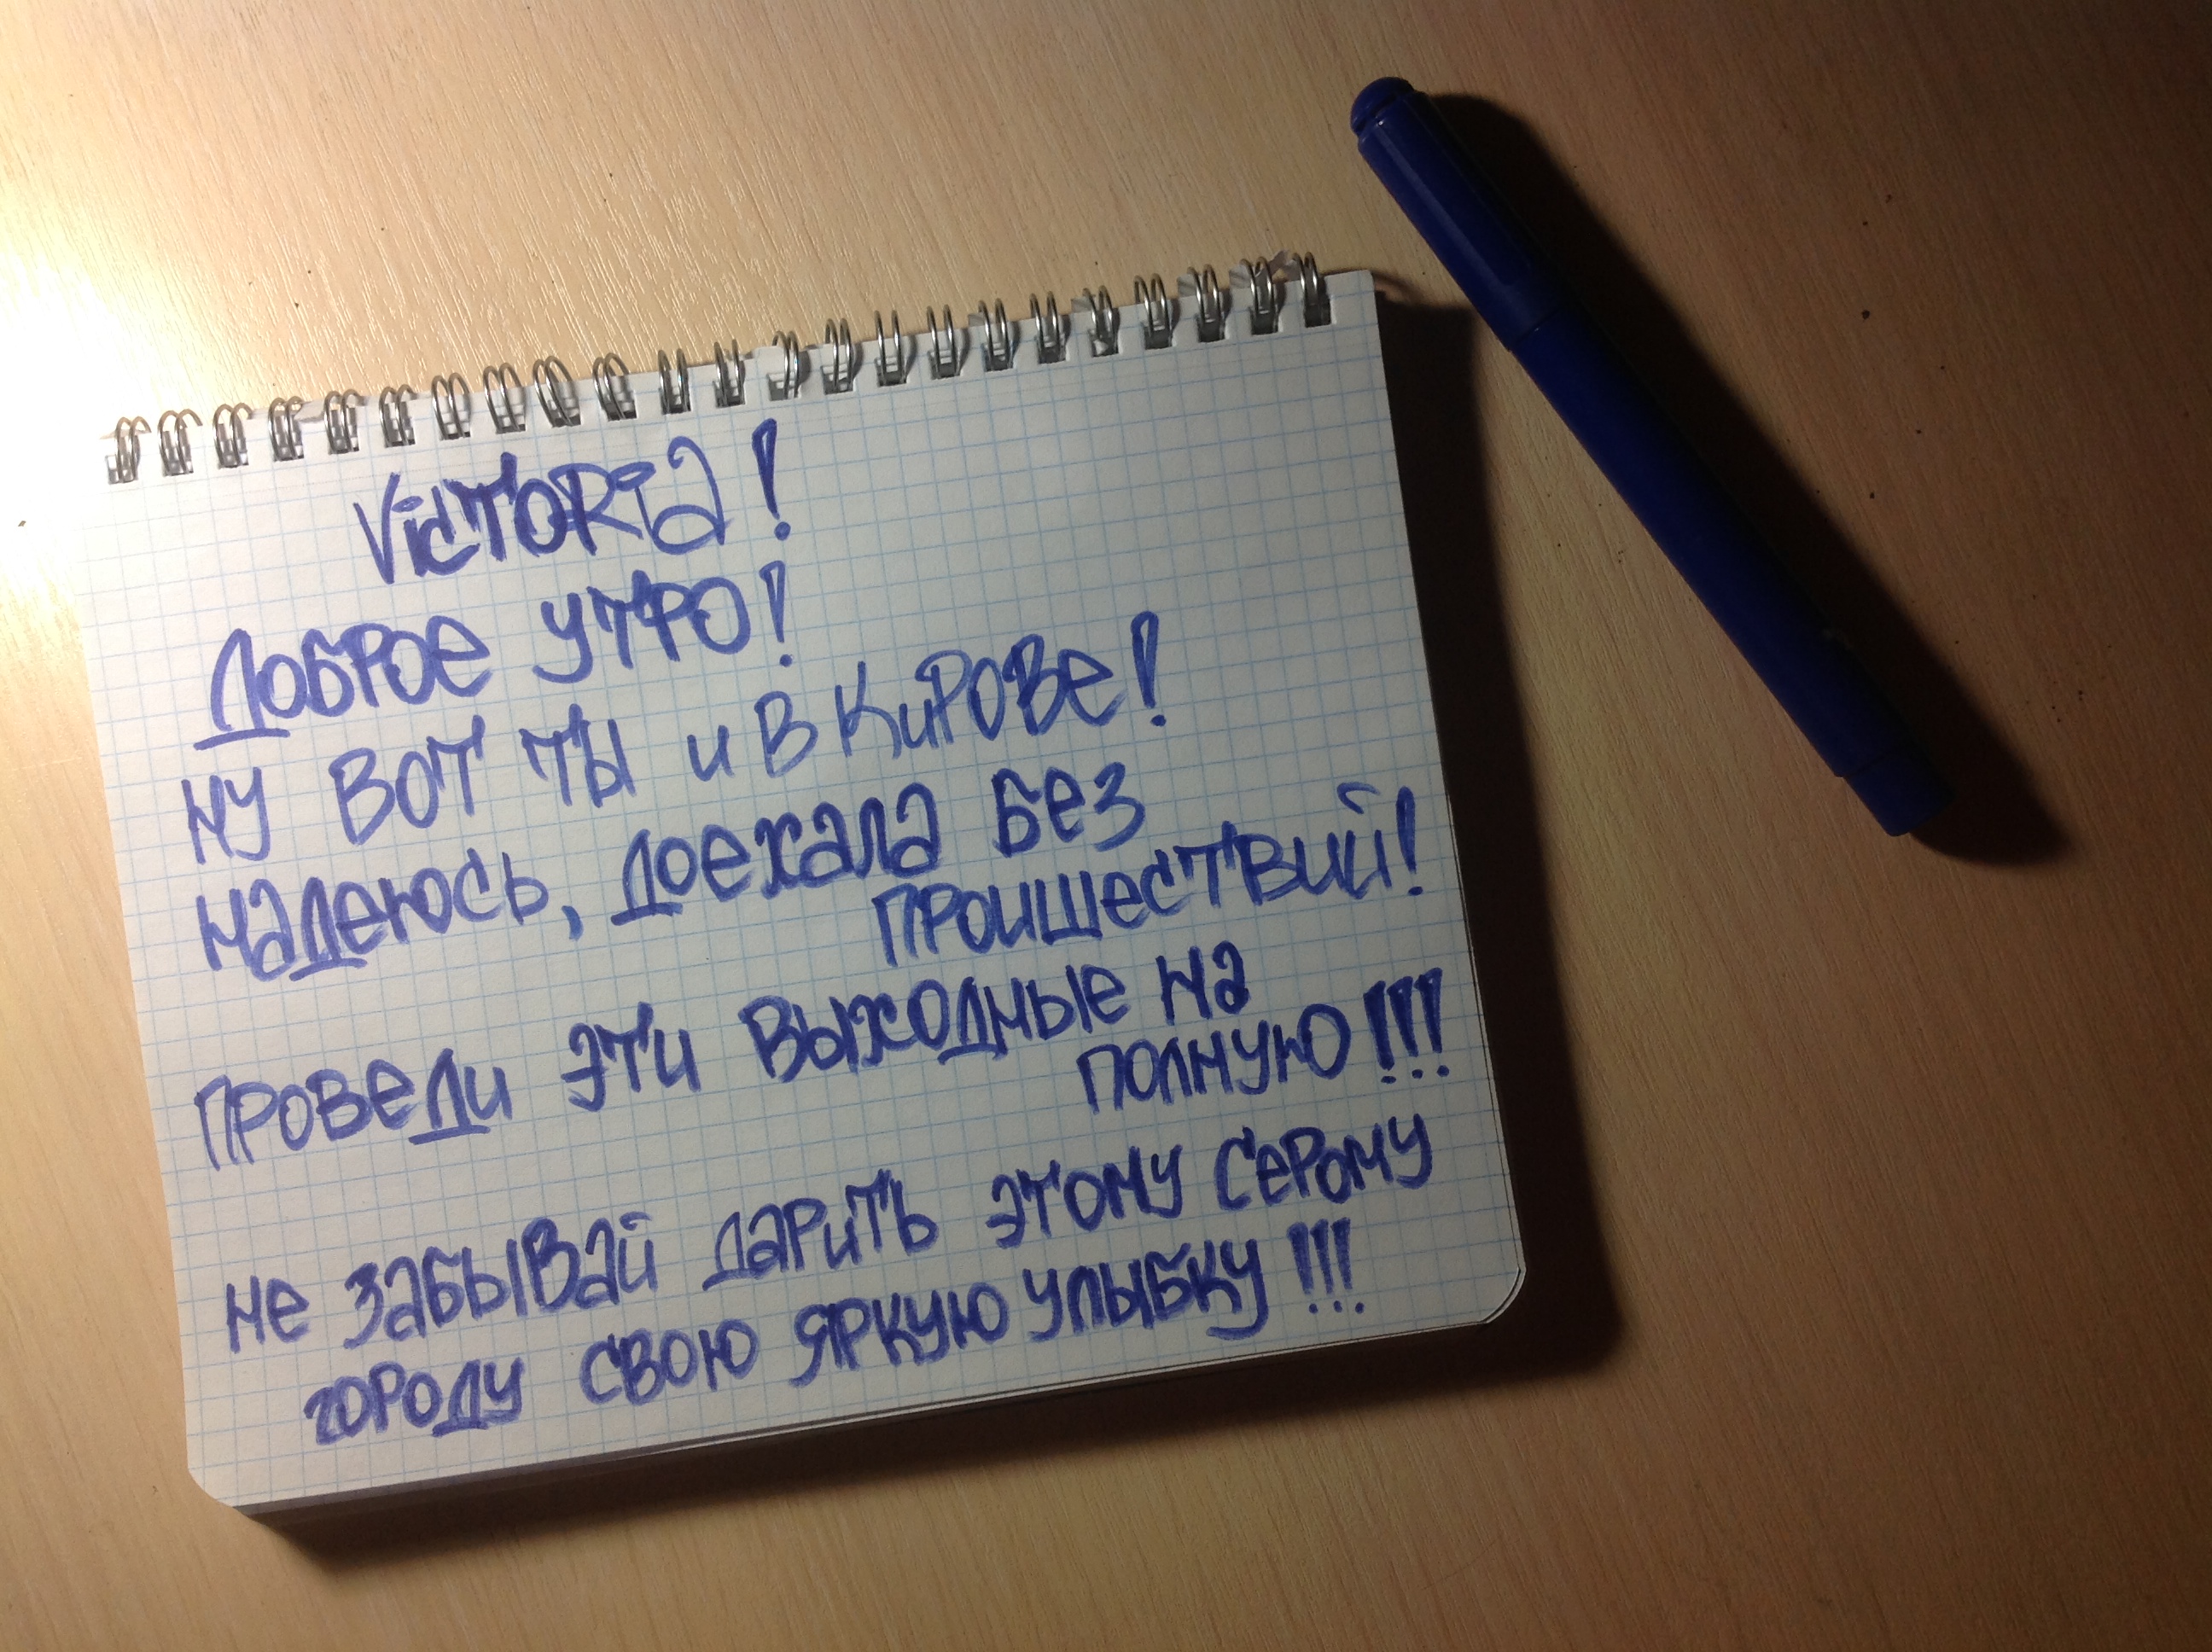 VicTORia!
Доброе утро!
ну вот ты и в Кирове!
надеюсь, доехала без
проишествий!
проведи эти выходные на
полную!!!
не забывай дарить этому серому
городу свою яркую улыбку!!!